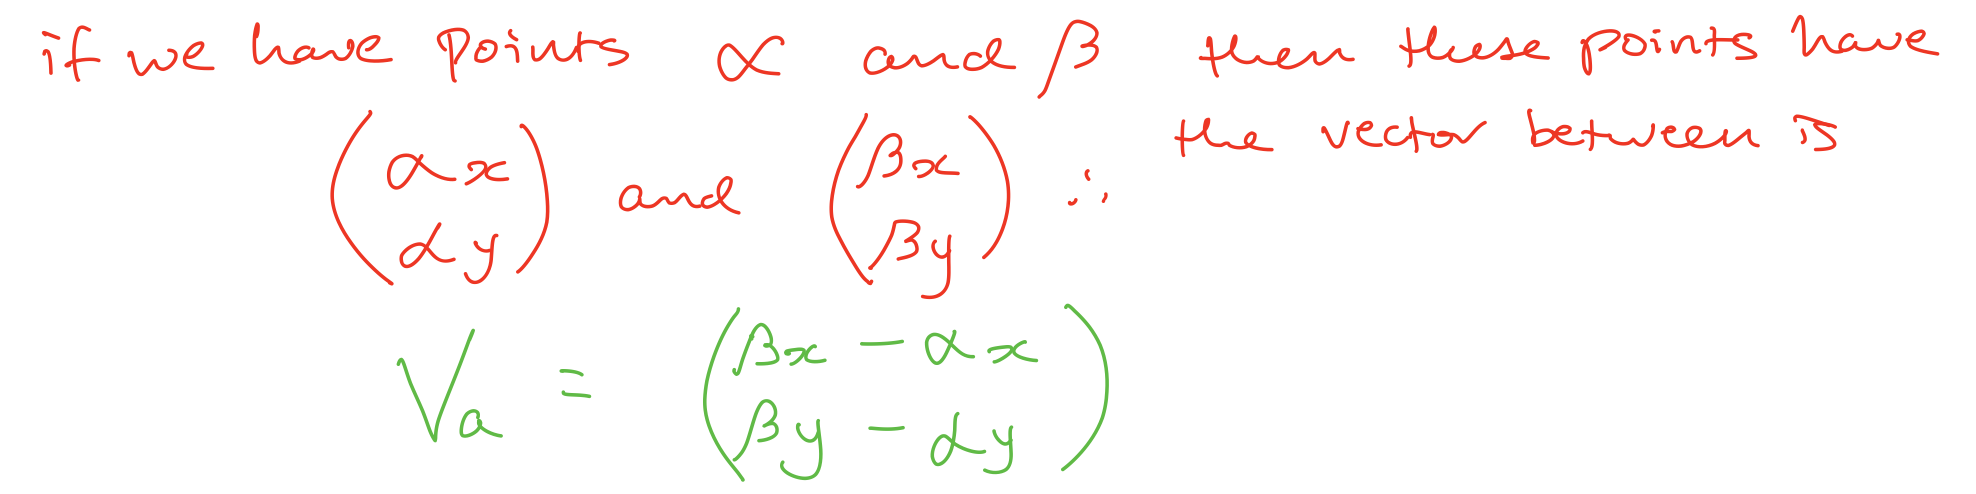 if we have points α and β then these points have
(αx αy) and (βx βy) ∴ the vector between is
Va = (βx - αx βy - αy)